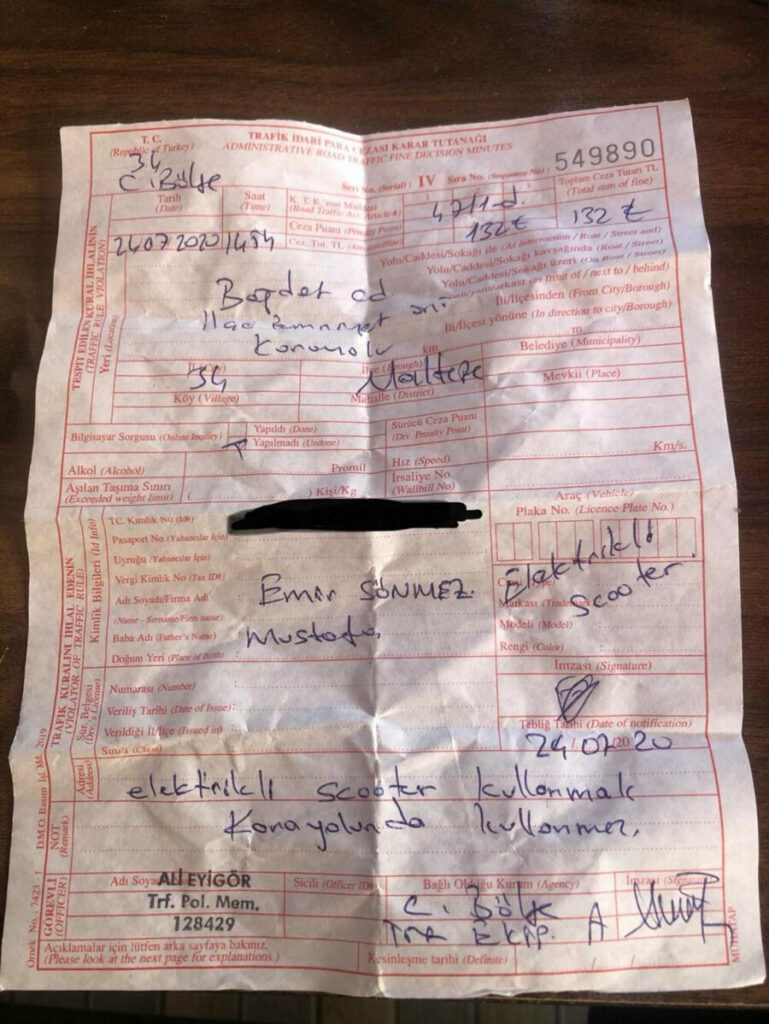 T. C.
(Republic of Turkey)
TRAFİK İDARİ PARA CEZASI KARAR TUTANAĞI
ADMINISTRATIVE ROAD TRAFFIC FINE DECISION MINUTES
34
C. Bölge
Seri No. (Serial) : IV Sıra No. (Sequence No) : 549890
Tarih
(Date)
Saat
(Time)
K. T. K.'nın Maddesi
(Road Traffic Act. Article #)
47/1-d.
Toplam Ceza Tutarı TL
(Total sum of fine)
Ceza Puanı (Penalty Point)
24 07 2020 1454
Cez. Tut. TL
132 ₺
132 ₺
TESPİT EDİLEN KURAL İHLALİNİN
(TRAFFIC RULE VIOLATION)
Yeri (Location)
Yolu/Caddesi/Sokağı ile (At intersection / Road / Street and)
Yolu/Caddesi/Sokağı kavşağında (Road / Street)
Yolu/Caddesi/Sokağı üzeri (On Road / Street)
önü/yanı/arkası (in front of / next to / behind)
İli/İlçesinden (From City/Borough)
İli/İlçesi yönüne (In direction to city/Borough)
Bağdat cd
önü
Karakolu
km. m.
34
Maltepe
Belediye (Municipality)
Köy (Village)
Mahalle (District)
Mevkii (Place)
Bilgisayar Sorgusu (Online Inquiry)
Yapıldı (Done)
Yapılmadı (Undone)
Sürücü Ceza Puanı
(Drv. Penalty Point)
Alkol (Alcohol) Promil
Hız (Speed) Km/s.
Aşılan Taşıma Sınırı
(Exceeded weight limit)
(..........) Kişi/Kg
İrsaliye No.
(Waillbill No)
TRAFİK KURALINI İHLAL EDENİN
(VIOLATOR OF TRAFFIC RULE)
Kimlik Bilgileri (Id Info)
TC. Kimlik No (Id#)
Pasaport No (Yabancılar İçin)
Uyruğu (Yabancılar İçin)
Vergi Kimlik No (Tax ID#)
Adı Soyadı/Firma Adı
(Name - Surname/Firm name)
Emir SÖNMEZ.
Baba Adı (Father's Name)
Mustafa,
Doğum Yeri (Place of Birth)
Araç (Vehicle)
Plaka No. (Licence Plate No.)
Elektrikli
scooter.
Markası
Modeli (Model)
Rengi (Color)
Sür. Belgesi
(Drv.'s License)
Numarası (Number)
Veriliş Tarihi (Date of Issue)
Verildiği İl/İlçe (Issued in)
Sınıfı (Class)
İmzası (Signature)
Tebliğ Tarihi (Date of notification)
24/07/2020
Adresi
(Address)
elektrikli scooter kullanmak
NOT
(Remark)
Karayolunda kullanmez.
D.M.O. Basım İşl. Md. 2019
GÖREVLİ
(OFFICER)
Adı Soyadı
ALİ EYİGÖR
Trf. Pol. Mem.
128429
Sicili (Officer ID#)
Bağlı Olduğu Kurum (Agency)
C. Bölge
Trf. Ekip. A
İmzası
Açıklamalar için lütfen arka sayfaya bakınız.
(Please look at the next page for explanations.)
Kesinleşme tarihi (Definite)
/ /
Örnek No. : 7423
MUHATAP